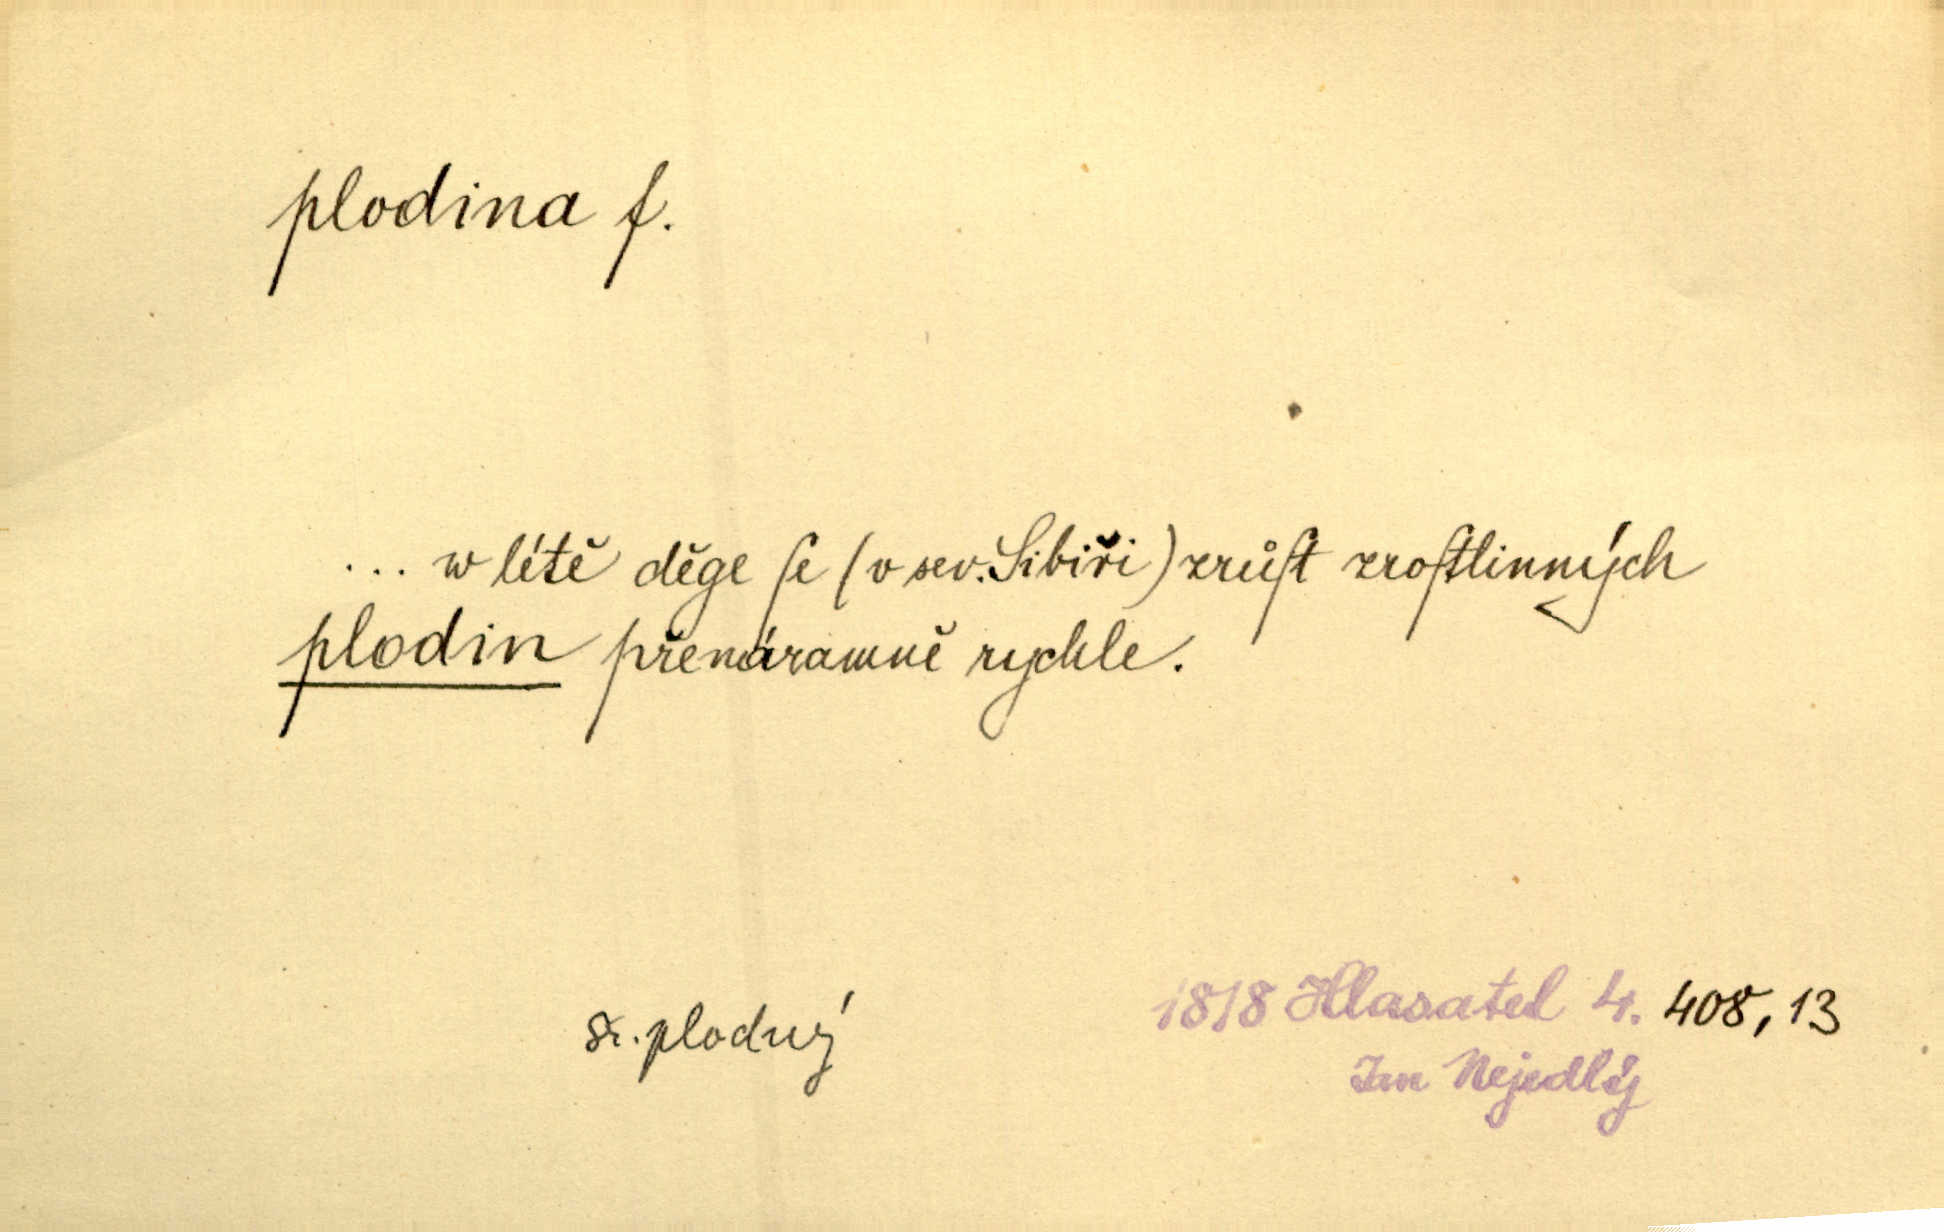 plodina f.
... w létě děge ſe (v sev. Sibiři) zrůſt zroſtlinných
plodin přenáramně rychle.
sr. plodný
1818 Hlasatel 4. 408, 13
Jan Nejedlý